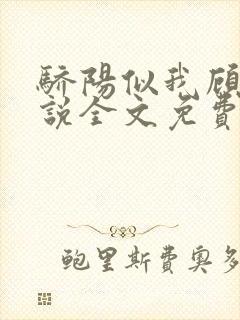 驕陽似我顧
說全文免費
鲍里斯費奧多